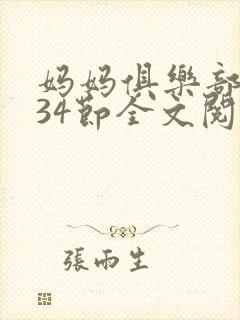 妈妈俱樂部
34節全文閱
張雨生